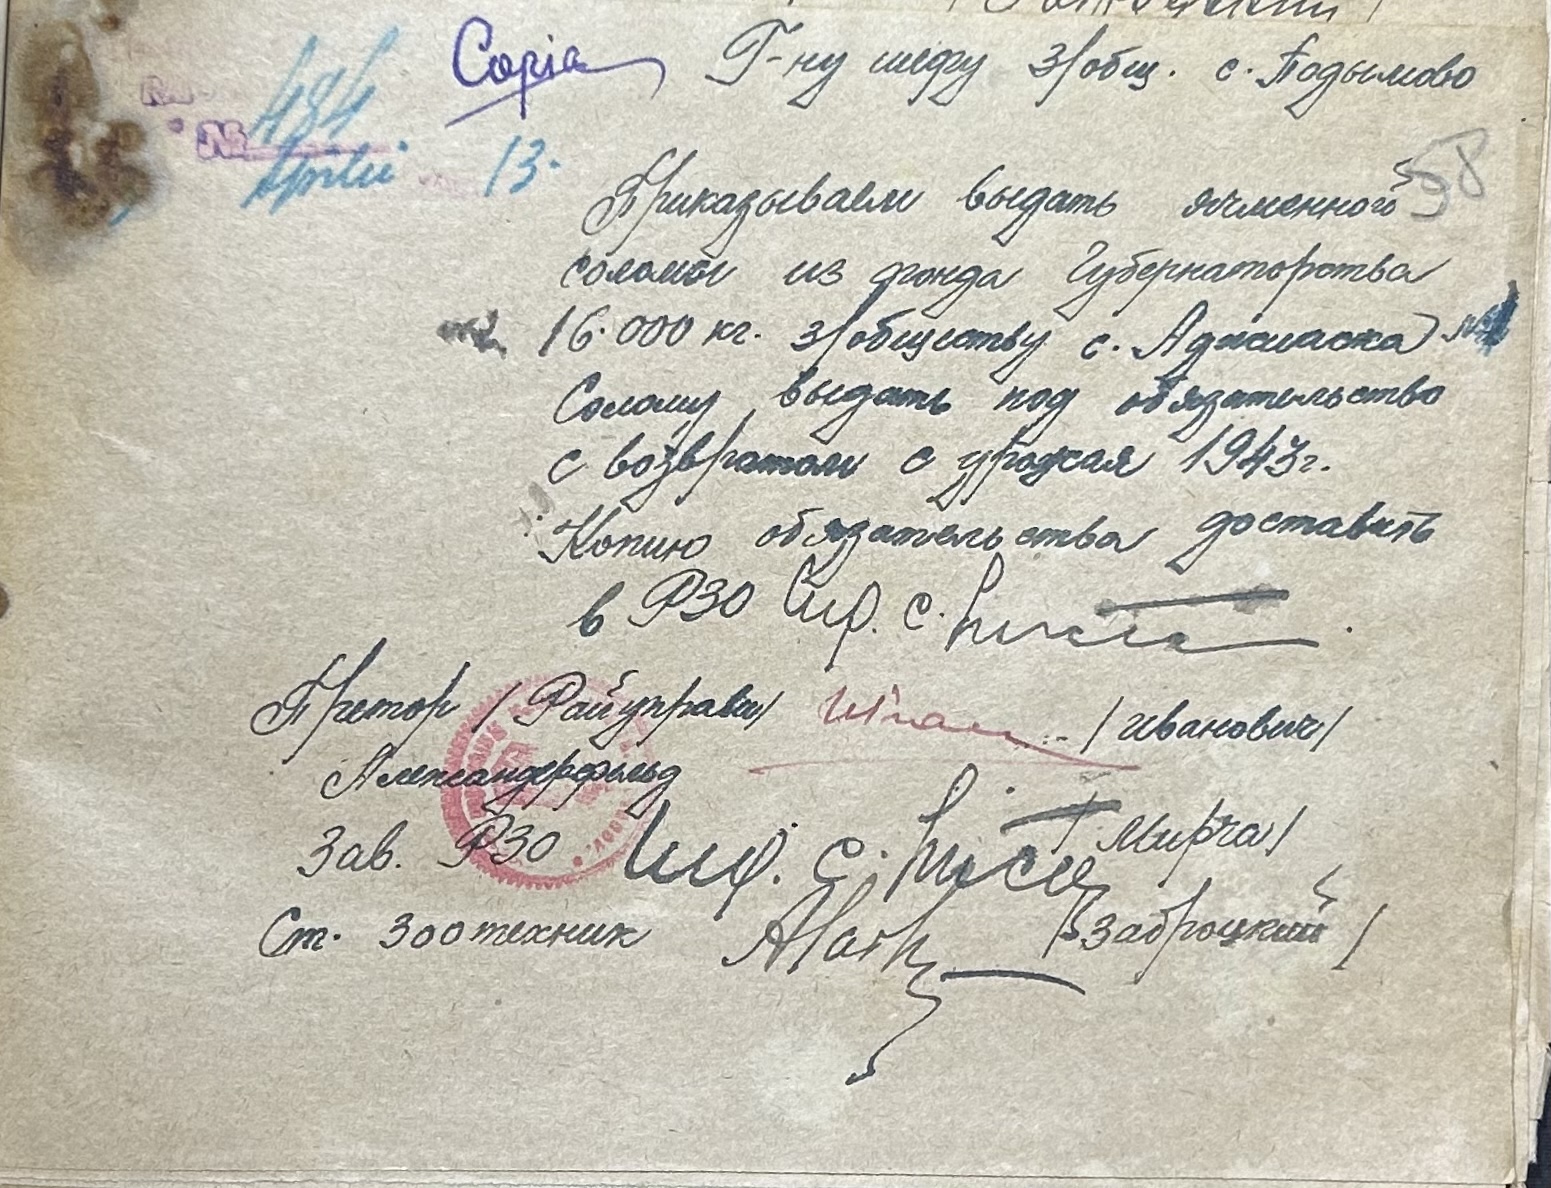 Copia Г-ну шефу з/общ. с. Подымово
№ 484
Aprilie 13.
58
Приказываем выдать ячменной
соломы из фонда Губернаторства
16.000 кг. з/обществу с. Аджиаска №1
Солому выдать под обязательство
с возвратом с урожая 1943 г.
Копию обязательства доставить
в РЗО
Претор /Райуправы/ /Иванович/
Александерфельд
Зав. РЗО /Мирча/
Ст. Зоотехник /Заброцкий/